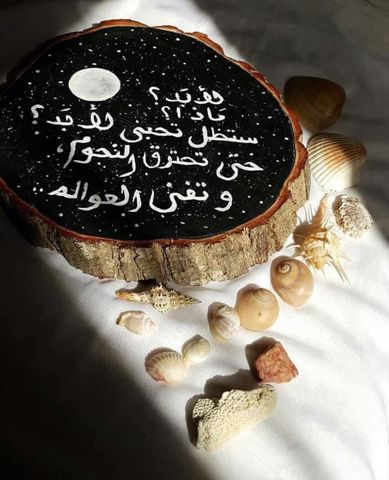 للأبَد؟
مَاذا؟
ستظل تحبني للأبَد؟
حتى تحترق النجوم،
و تفنى العوالم ..